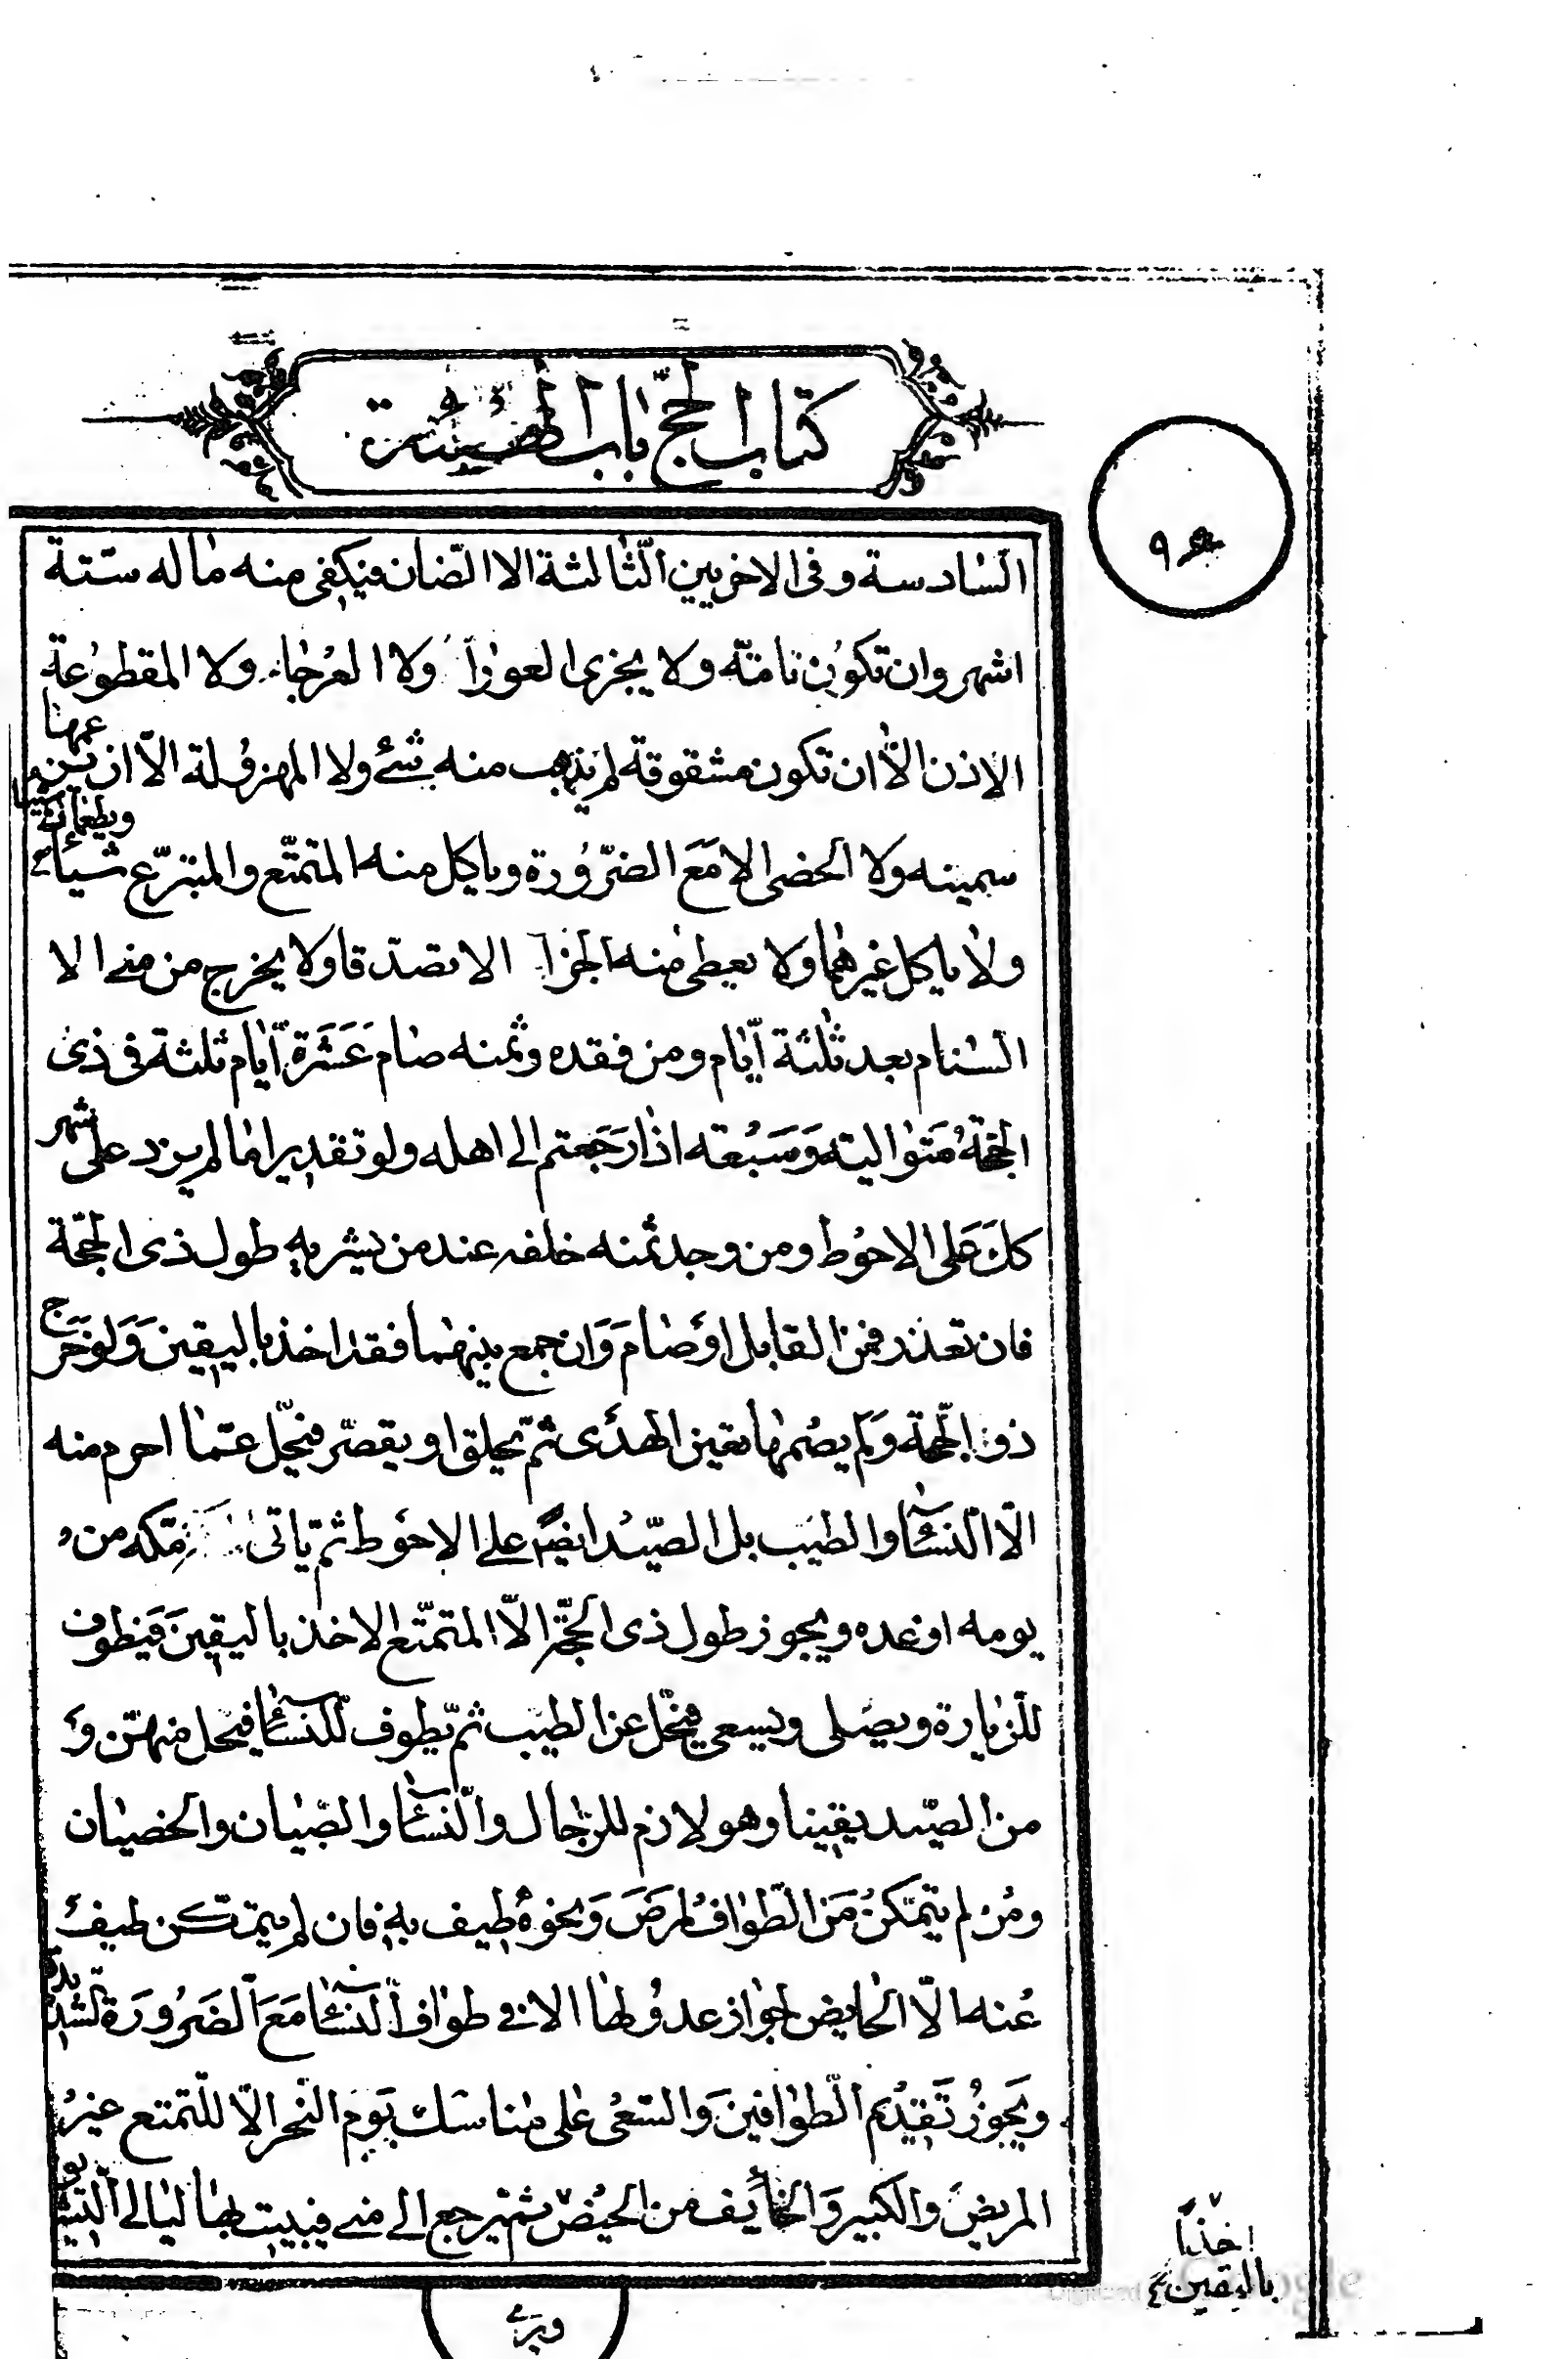 كتاب الحج باب الهيئة
السادسة وفى الاخريين الثالثة الا الضان فيكفى منه ماله ستة
اشهر وان تكون تامّة ولا يجزى العوراء ولا العرجاء ولا المقطوعة
الاذن الّا ان تكون مشقوقة لم يذهب منه شئ ولا المهزولة الّا ان
سمينه ولا الخصى الا مَعَ الضرّورة وياكل منه المتمتّع والمتبرّع شيئا
ولا ياكل غيرهما ولا يعطى منه الجزار الا تصدّقا ولا يخرج من منى الا
السنام بعد ثلثة ايّام ومن فقده وثمنه صام عَشَرَة ايّام ثلثة فى ذى
الحجّة متواليته وَسَبْعته اذا رَجَعتم الى اهله ولو تقديرا ما لم يزد على شهر
كلّ عَلى الاحوط ومن وجد ثمنه خلفه عند من يشريه طول ذى الحجّة
فان تعذر فمن القابل اوْ صَامَ وَان جمع بينهما فقد اخذ باليقينَ وَلو خَرَج
ذو الحجّة وَلم يصُمها تعين الهدْى ثم يحلق او يقصّر فيحلّ عمّا احرم منه
الّا النسَاء والطيب بل الصّيد ايضا على الاحوط ثم ياتى مكه من
يومه او غده ويجوز طول ذى الحجّة الّا المتمتّع الاخذ باليقينَ فيَطوف
للزيارة ويصَلى ويسعى فيحلّ عن الطيب ثم يطوف للنسَاء فيحل منهنّ وَ
من الصّيد يقينا وهو لازم للرّجال والنسَاء والصّبيان والخصيان
ومن لم يتمكنْ مَن الطّواف لمرضَ وَنحوه طيف به فان لم يمتكن طيف
عنه الّا الحايض لجواز عدولها الا فى طواف النسَاء مَعَ الضَرورَة لشديدة
ويَجوزُ تَقديم الطّوافينَ وَالسّعى على مناسك يَوم النّحر الّا للتمتع غيرُ
المريضَ والكبير وَالخائيف من الحيض ثم يرجع الى منى فيبيت بها ليالى التشريق
اخذًا
باليقين